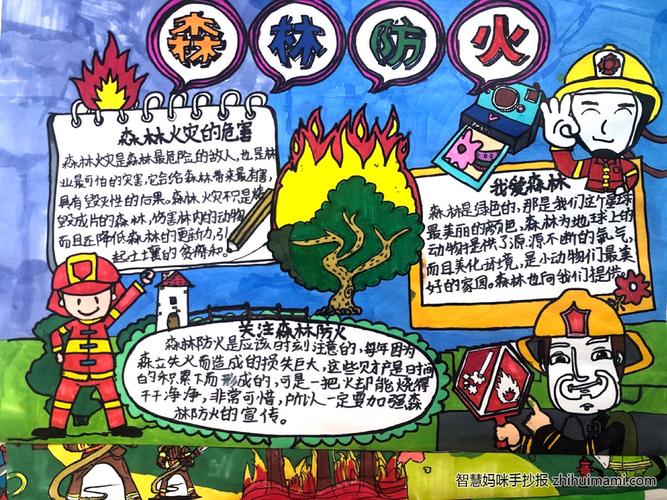 森林防火
森林火灾的危害
森林火灾是森林最危险的敌人,也是林
业最可怕的灾害,它会给森林带来最有害,
具有毁灭性的后果。森林火灾不只是烧
毁成片的森林,伤害林内的动物
而且还降低森林的更新力,引
起土壤的贫瘠和。
我爱森林
森林是绿色的,那是我们这个星球
最美丽的颜色,森林为地球上的
动物提供了源源不断的氧气,
而且美化环境,是小动物们最美
好的家园。森林也向我们提供。
关注森林防火
森林防火是应该时刻注意的,每年因为
森立失火而造成的损失巨大,这些财产是日时间
的积累下而形成的,可是一把火却能烧得
干干净净,非常可惜,所以一定要加强森
林防火的宣传。
智慧妈咪手抄报 zhihuimami.com